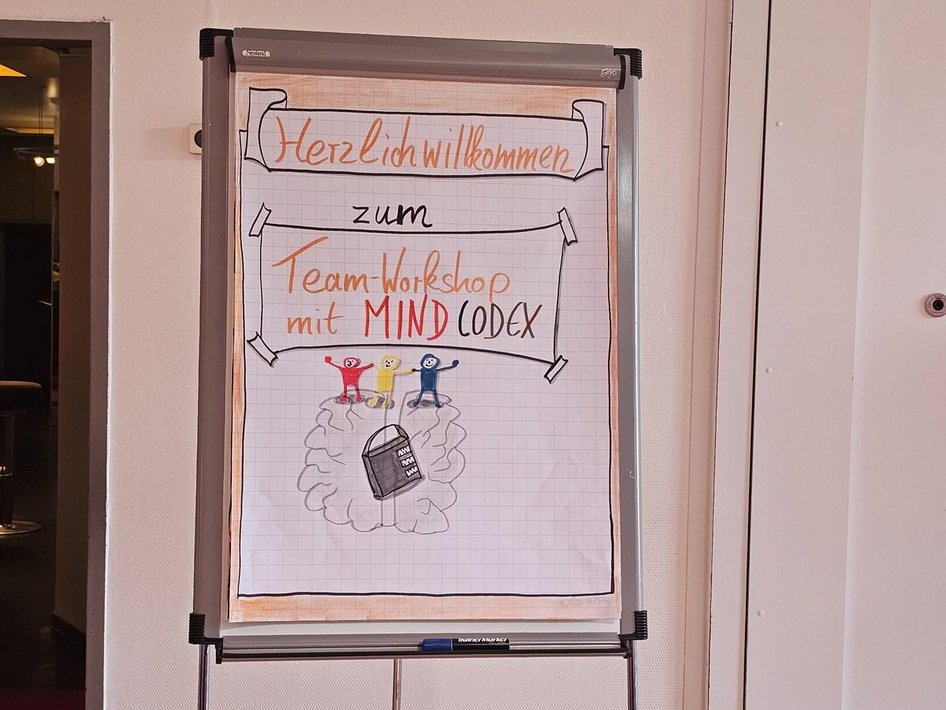 Neuland
Herzlich willkommen
zum
Team-Workshop
mit MINDCODEX